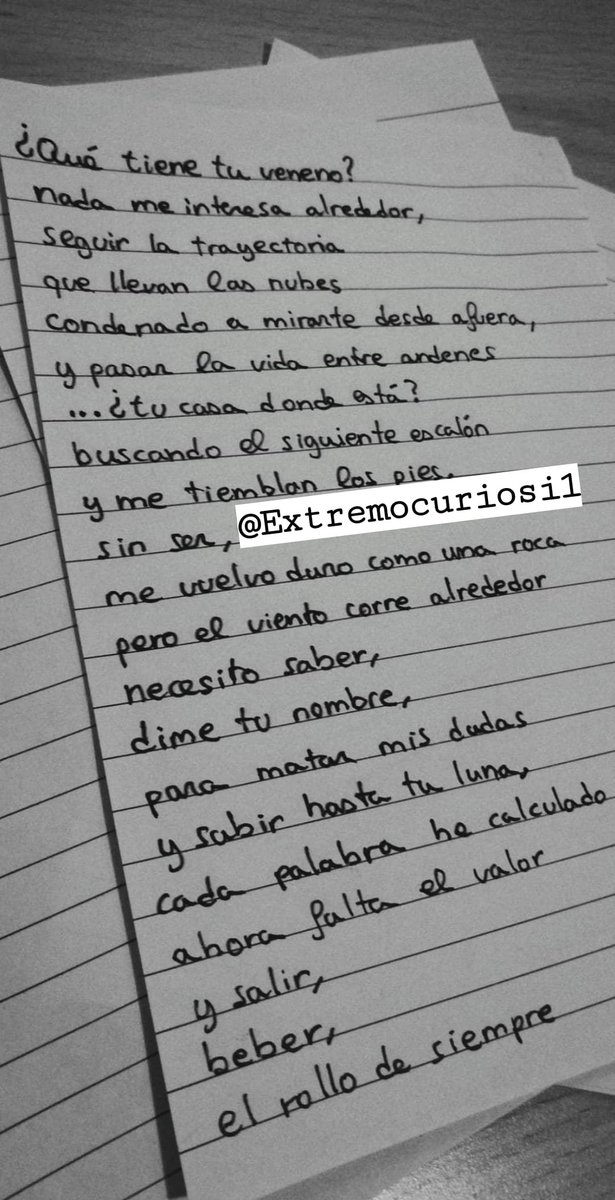 ¿Qué tiene tu veneno?
nada me interesa alrededor,
seguir la trayectoria
que llevan las nubes
condenado a mirarte desde afuera,
y pasar la vida entre andenes
...¿tu casa donde está?
buscando el siguiente escalón
y me tiemblan los pies.
sin ser,
@Extremocuriosi1
me vuelvo duro como una roca
pero el viento corre alrededor
necesito saber,
dime tu nombre,
para matar mis dudas
y subir hasta tu luna,
cada palabra he calculado
ahora falta el valor
y salir,
beber,
el rollo de siempre